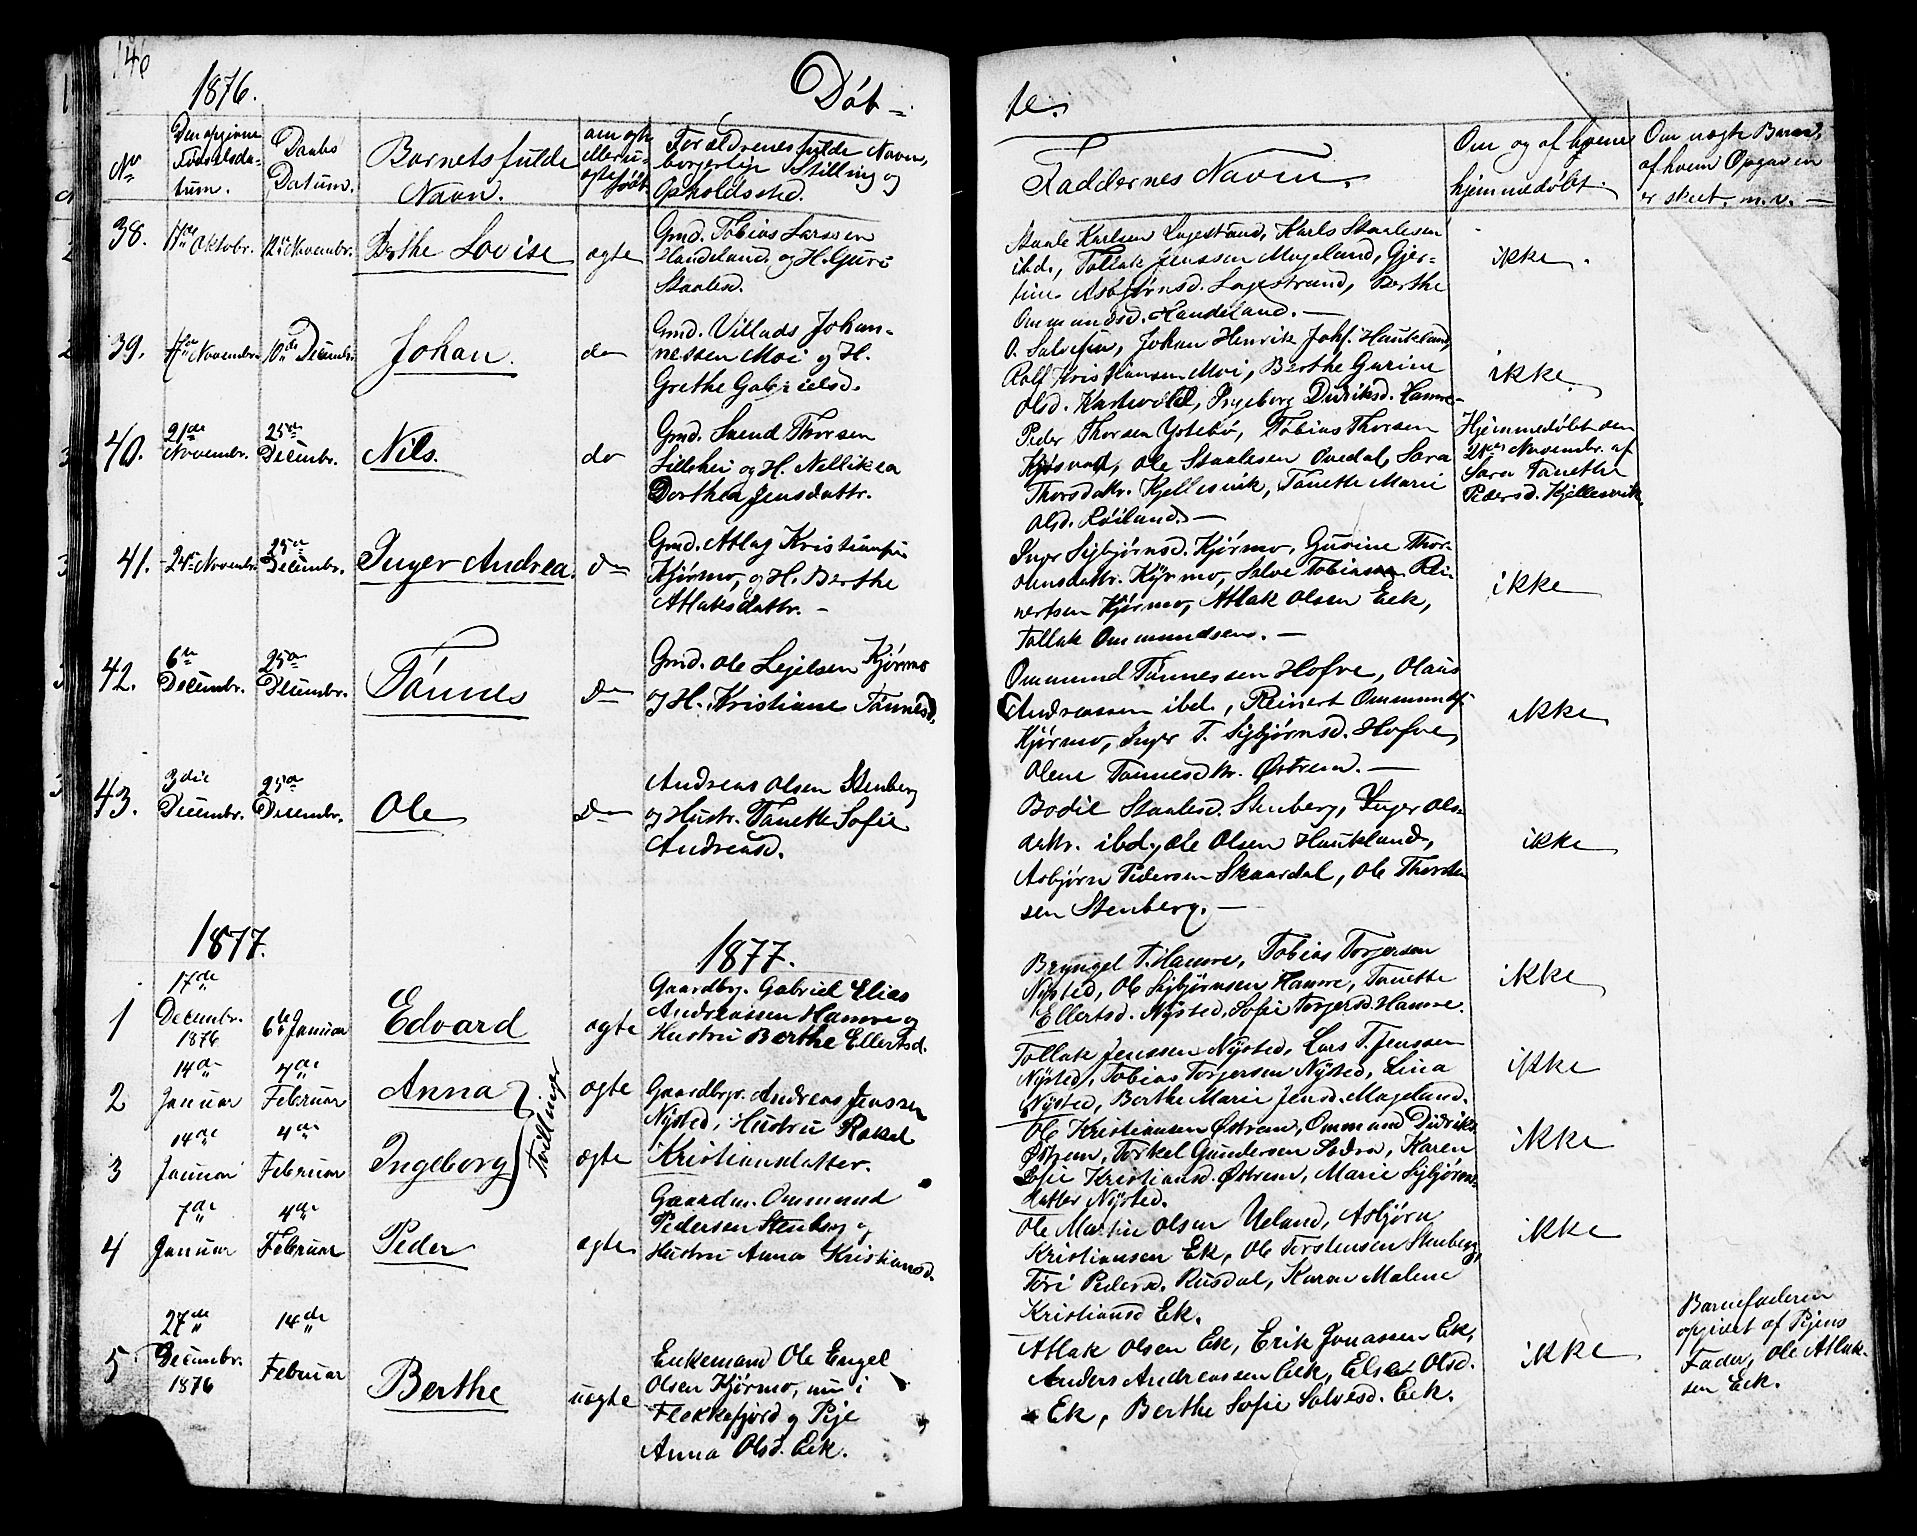 146
1876.
Døb-
te.
No
Den opgivne
Fødselsda-
tum.
Daabs
Datum.
Barnets fulde
Navn.
om ægte
eller u-
ægte født
Forældrenes fulde Navn,
borgerlige Stilling og
Opholdssted.
Faddernes Navn.
Om og af hvem
hjemmedøbt.
Om uægte Barn,
af hvem Opgaven
er skeet, m.v. —
38.
Oktobr.
12te Novembr.
Berthe Lovise
ægte
Gmd. Tobias Larssen
Handeland og H. Guri
Staalesd.
Staale Karlsen Lagestrand, Karls Staalesen
ibd., Tollak Jenssen Mageland, Gjer-
tine Asbjørnsd. Lagestrand, Berthe
Ommundsd. Handeland. —
ikke.
39.
Novembr.
10de Decembr.
Johan.
do
Gmd. Villads Johan-
nessen Moi og H.
Grethe Gabrielsd.
O. Salvesen, Johan Henrik Johs. Haukland,
Rolf Kristiansen Moi, Berthe Gurine
Olsd. Hamre-
ikke.
40.
21de
Novembr.
25de
Decembr.
Nils.
do
Gmd. Svend Thorsen
Lillehei og H. Nellikea
Dorthea Jensdattr.
Peder Thorsen Ystebø, Tobias Thorsen
Ole Staalesen Ovedal, Sara
Thorsdattr. Kjellesvik, Tanette Marie
Olsd. Røiland. —
Hjemmedøbt den
Novembr. af
Sara Tanethe
Pedersd. Kjellesvik.
41.
24de Novembr.
25de
Decembr.
Inger Andrea.
do
Gmd. Atlag Kristiansen
Kjørmo, og H. Berthe
Atlaksdattr. —
Inger Sigbjørnsd. Kjørmo, Gurine Thor-
Kjørmo, Salve Tobiassen Rei-
nertsen Kjørmo, Atlak Olsen Eek,
Tollak Ommundsen. —
ikke
42.
6te
Decembr.
25de
Decembr.
Tønnes
do
Gmd. Ole Lejelsen Kjørmo
og H. Kristiane Tønnesd.
Ommund Tønnessen Hofve, Olaus
Andreassen ibd., Reinert Ommundsf.
Kjørmo, Inger T. Sigbjørnsd. Hofve,
Olene Tønnesdtr. Østrem. —
ikke
43.
3die
Decembr.
25de
Decembr.
Ole
do
Andreas Olsen Stenberg
og Hustr. Tanette Sofie
Andreasd.
Bodil Staalesd. Stenberg, Inger Ols-
dattr. ibd., Ole Olsen Haukland,
Asbjørn Pedersen Skaardal, Ole Thorsten-
sen Stenberg. —
ikke
1877.
1877.
1
17de
Decembr.
1876
6te Januar
Edvard
ægte
Gaardbr. Gabriel Elias
Andreassen Hamre og
Hustru Berthe Ellertsd.
Bryngel T. Hamre, Tobias Torgersen
Nysted, Ole Sigbjørnsen Hamre, Tanette
Ellertsd. Nysted, Sofie Torgersd. Hamre.
ikke
2
14de
Januar
4de
Februar
Anna
Tvillinger
ægte
Gaardbgr. Andreas Jenssen
Nysted, Hustru Rakel
Kristiansdatter.
Tollak Jenssen Nysted, Lars T. Jenssen
Nysted, Tobias Torgersen Nysted, Lina
Nysted, Berthe Marie Jensd. Mageland.
ikke
3
14de
Januar
4de
Februar
Ingeborg
ægte
Ole Kristiansen Østrem, Ommund Didriks.
Østrem, Torkel Gundersen Lodra, Karen
Sofie Kristiansd. Østrem, Marie Sigbjørns-
datter Nysted.
ikke
4
7de
Januar
4de
Februar
Peder
ægte
Gaardm. Ommund
Pedersen Stenberg og
Hustru Anna Kristiansd.
Ole Martin Olsen Ueland, Asbjørn
Kristiansen Ek, Ole Torstensen Stenberg,
Tori Pedersd. Rusdal, Karen Malene
Kristiansd Ek.
ikke
5
27de
Decembr.
1876
14de
Februar
Berthe
uægte
Enkemand Ole Engel
Olsen Kjørmo, nu i
Flekkefjord og Pige
Anna Olsd. Eek.
Atlak Olsen Ek, Erik Jonassen Ek,
Anders Andreassen Eek, Else Olsd.
Ek, Berthe Sofie Salvesd. Eek.
ikke
Barnefaderen
opgivet af Pigens
Fader, Ole Atlak-
sen Eek.